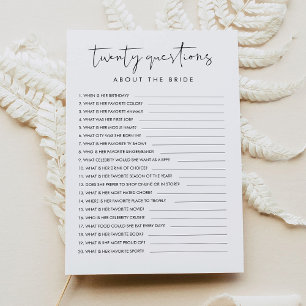 twenty questions
ABOUT THE BRIDE
1. WHEN IS HER BIRTHDAY?
2. WHAT IS HER FAVORITE COLOR?
3. WHAT IS HER FAVORITE ANIMAL?
4. WHAT WAS HER FIRST JOB?
5. WHAT IS HER MIDDLE NAME?
6. WHAT CITY WAS SHE BORN IN?
7. WHAT IS HER FAVORITE TV SHOW?
8. WHO IS HER FAVORITE SINGER/BAND?
9. WHAT CELEBRITY WOULD SHE WANT AS A
10. WHAT IS HER DRINK OF CHOICE?
11. WHAT IS HER FAVORITE SEASON OF THE YEAR?
12. DOES SHE PREFER TO SHOP ONLINE OR IN STORE?
13. WHAT IS HER MOST HATED CHORE?
14. WHERE IS HER FAVORITE PLACE TO TRAVEL?
15. WHAT IS HER FAVORITE MOVIE?
16. WHO IS HER CELEBRITY CRUSH?
17. WHAT FOOD COULD SHE EAT EVERY DAY?
18. WHAT IS HER FAVORITE BOOK?
19. WHAT IS SHE MOST PROUD OF?
20. WHAT IS HER FAVORITE SPORT?